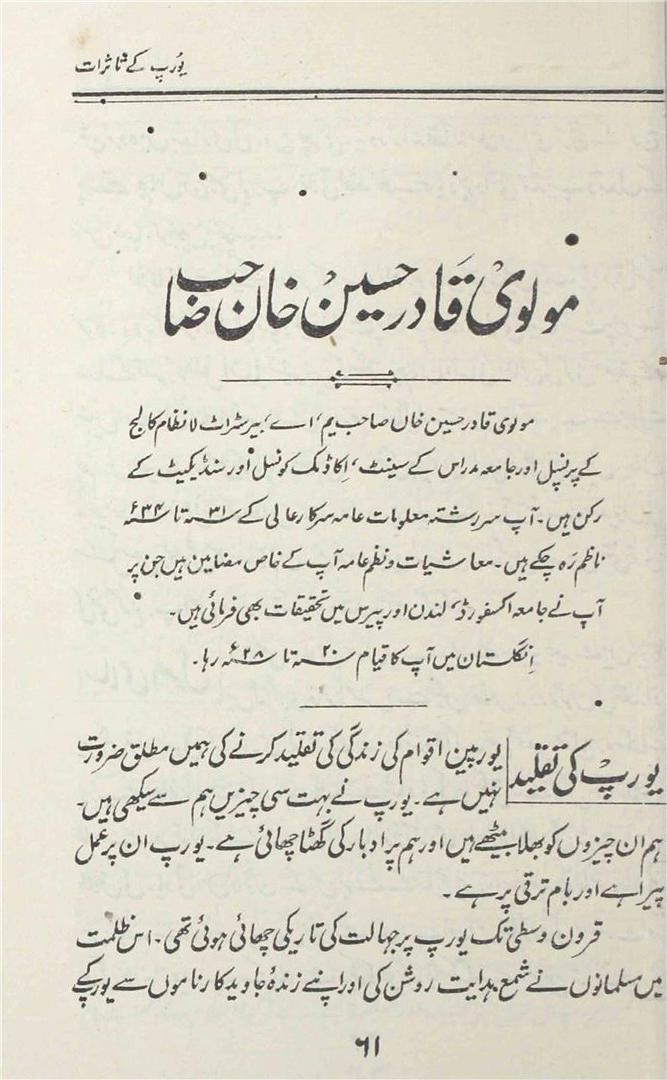 یورپ کے تاثرات
مولوی قادر حسین خان صاحب
مولوی قادر حسین خاں صاحب یم، اے، بیرسٹراٹ لا نظام کالج
کے پرنسپل اور جامعہ مدراس کے سینٹ، اکاڈمک کونسل اور سنڈیکیٹ کے
رکن ہیں۔ آپ سررشتہ معلومات عامہ سرکار عالی کے ۳۱ء تا ۳۴ء
ناظم رہ چکے ہیں۔ معاشیات و نظم عامہ آپ کے خاص مضامین ہیں جن پر
آپ نے جامعہ اکسفورڈ، لندن اور پیرس میں تحقیقات بھی فرمائی ہیں۔
انگلستان میں آپ کا قیام ۲۰ء تا ۲۸ء رہا۔
یورپ کی تقلید
یورپین اقوام کی زندگی کی تقلید کرنے کی ہمیں مطلق ضرورت
نہیں ہے۔ یورپ نے بہت سی چیزیں ہم سے سیکھی ہیں۔
ہم ان چیزوں کو بھلا بیٹھے ہیں اور ہم پر ادبار کی گھٹا چھائی ہے۔ یورپ ان پر عمل
پیرا ہے اور بام ترقی پر ہے۔
قرون وسطیٰ تک یورپ پر جہالت کی تاریکی چھائی ہوئی تھی۔ اس ظلمت
میں مسلمانوں نے شمع ہدایت روشن کی اور اپنے زندۂ جاوید کارناموں سے یورپ کے
۶۱